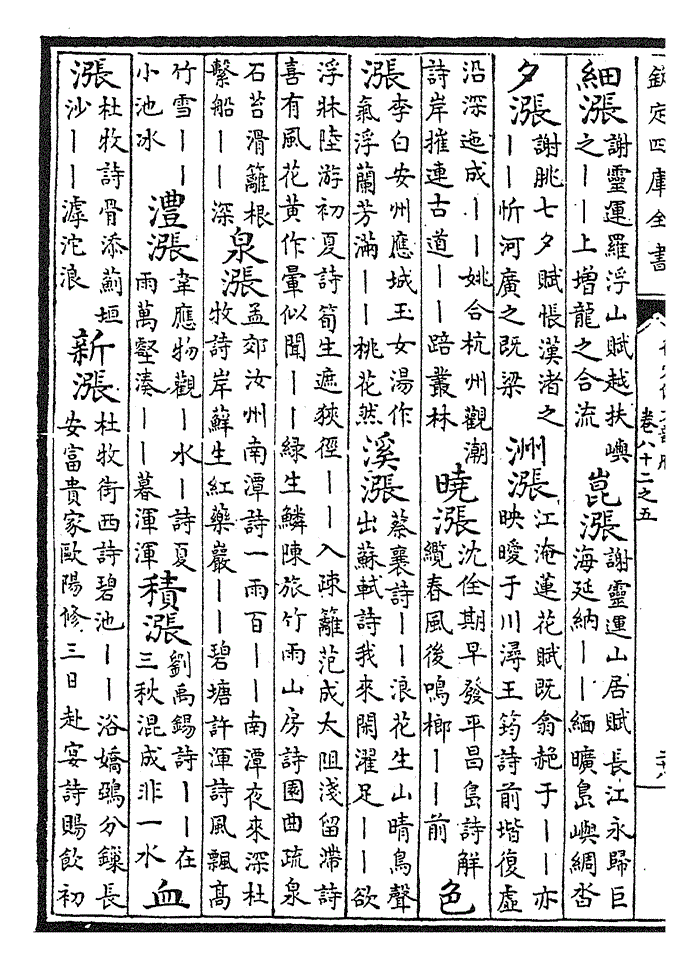 欽定四庫全書
卷八十二之五
細漲謝靈運羅浮山賦越扶嶼之——上增龍之合流 崑漲謝靈運山居賦長江永歸巨海延納——緬曠島嶼綢沓
夕漲謝朓七夕賦悵漢渚之——忻河廣之既梁 洲漲江淹蓮花賦既翕赩于——亦映曖于川潯王筠詩前堦復虛
沿深迤成——姚合杭州觀潮詩岸摧連古道——踣叢林 曉漲沈佺期早發平昌島詩解纜春風後鳴榔——前 色
漲李白安州應城玉女湯作氣浮蘭芳滿——桃花然 溪漲蔡襄詩——浪花生山晴鳥聲出蘇軾詩我來閒濯足——欲
浮牀陸游初夏詩筍生遮狹徑——入疎籬范成大阻淺留滯詩喜有風花黄作暈似聞——緑生鱗陳旅竹雨山房詩園曲疏泉
石苔滑籬根繫船——深 泉漲孟郊汝州南潭詩一雨百——南潭夜來深杜牧詩岸蘚生紅藥巖——碧塘許渾詩風飄高
竹雪——小池冰 灃漲韋應物觀—水—詩夏雨萬壑湊——暮渾渾 積漲劉禹錫詩——在三秋混成非一水 血
漲杜牧詩骨添薊垣沙——滹沱浪 新漲杜牧街西詩碧池——浴嬌鴉分鏁長安富貴家歐陽修三日赴宴詩賜飲初